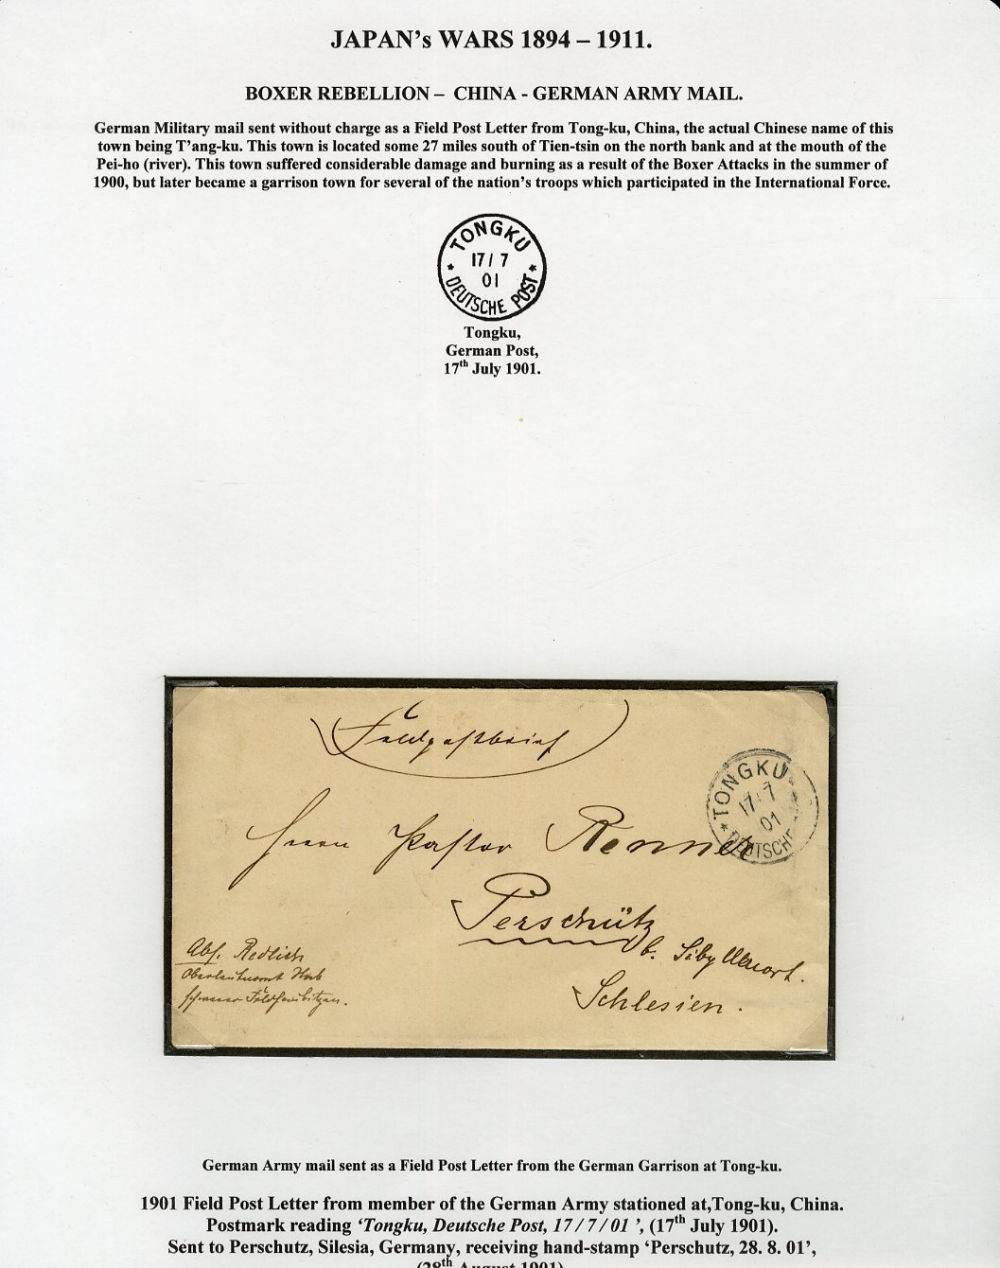 JAPAN's WARS 1894 – 1911.
BOXER REBELLION – CHINA - GERMAN ARMY MAIL.
German Military mail sent without charge as a Field Post Letter from Tong-ku, China, the actual Chinese name of this
town being T'ang-ku. This town is located some 27 miles south of Tien-tsin on the north bank and at the mouth of the
Pei-ho (river). This town suffered considerable damage and burning as a result of the Boxer Attacks in the summer of
1900, but later became a garrison town for several of the nation's troops which participated in the International Force.
TONGKU
17/ 7
01
* DEUTSCHE POST *
Tongku,
German Post,
17th July 1901.
Feldpostbrief
TONGKU
17/7
01
* DEUTSCHE
Herrn Pastor Renner
Perschütz
b. Sibyllenort.
Schlesien.
Abs. Redlich
Oberleutnant
schwerer Feldhaubitzen.
German Army mail sent as a Field Post Letter from the German Garrison at Tong-ku.
1901 Field Post Letter from member of the German Army stationed at,Tong-ku, China.
Postmark reading 'Tongku, Deutsche Post, 17/7/01 ', (17th July 1901).
Sent to Perschutz, Silesia, Germany, receiving hand-stamp 'Perschutz, 28. 8. 01',
(28th August 1901)